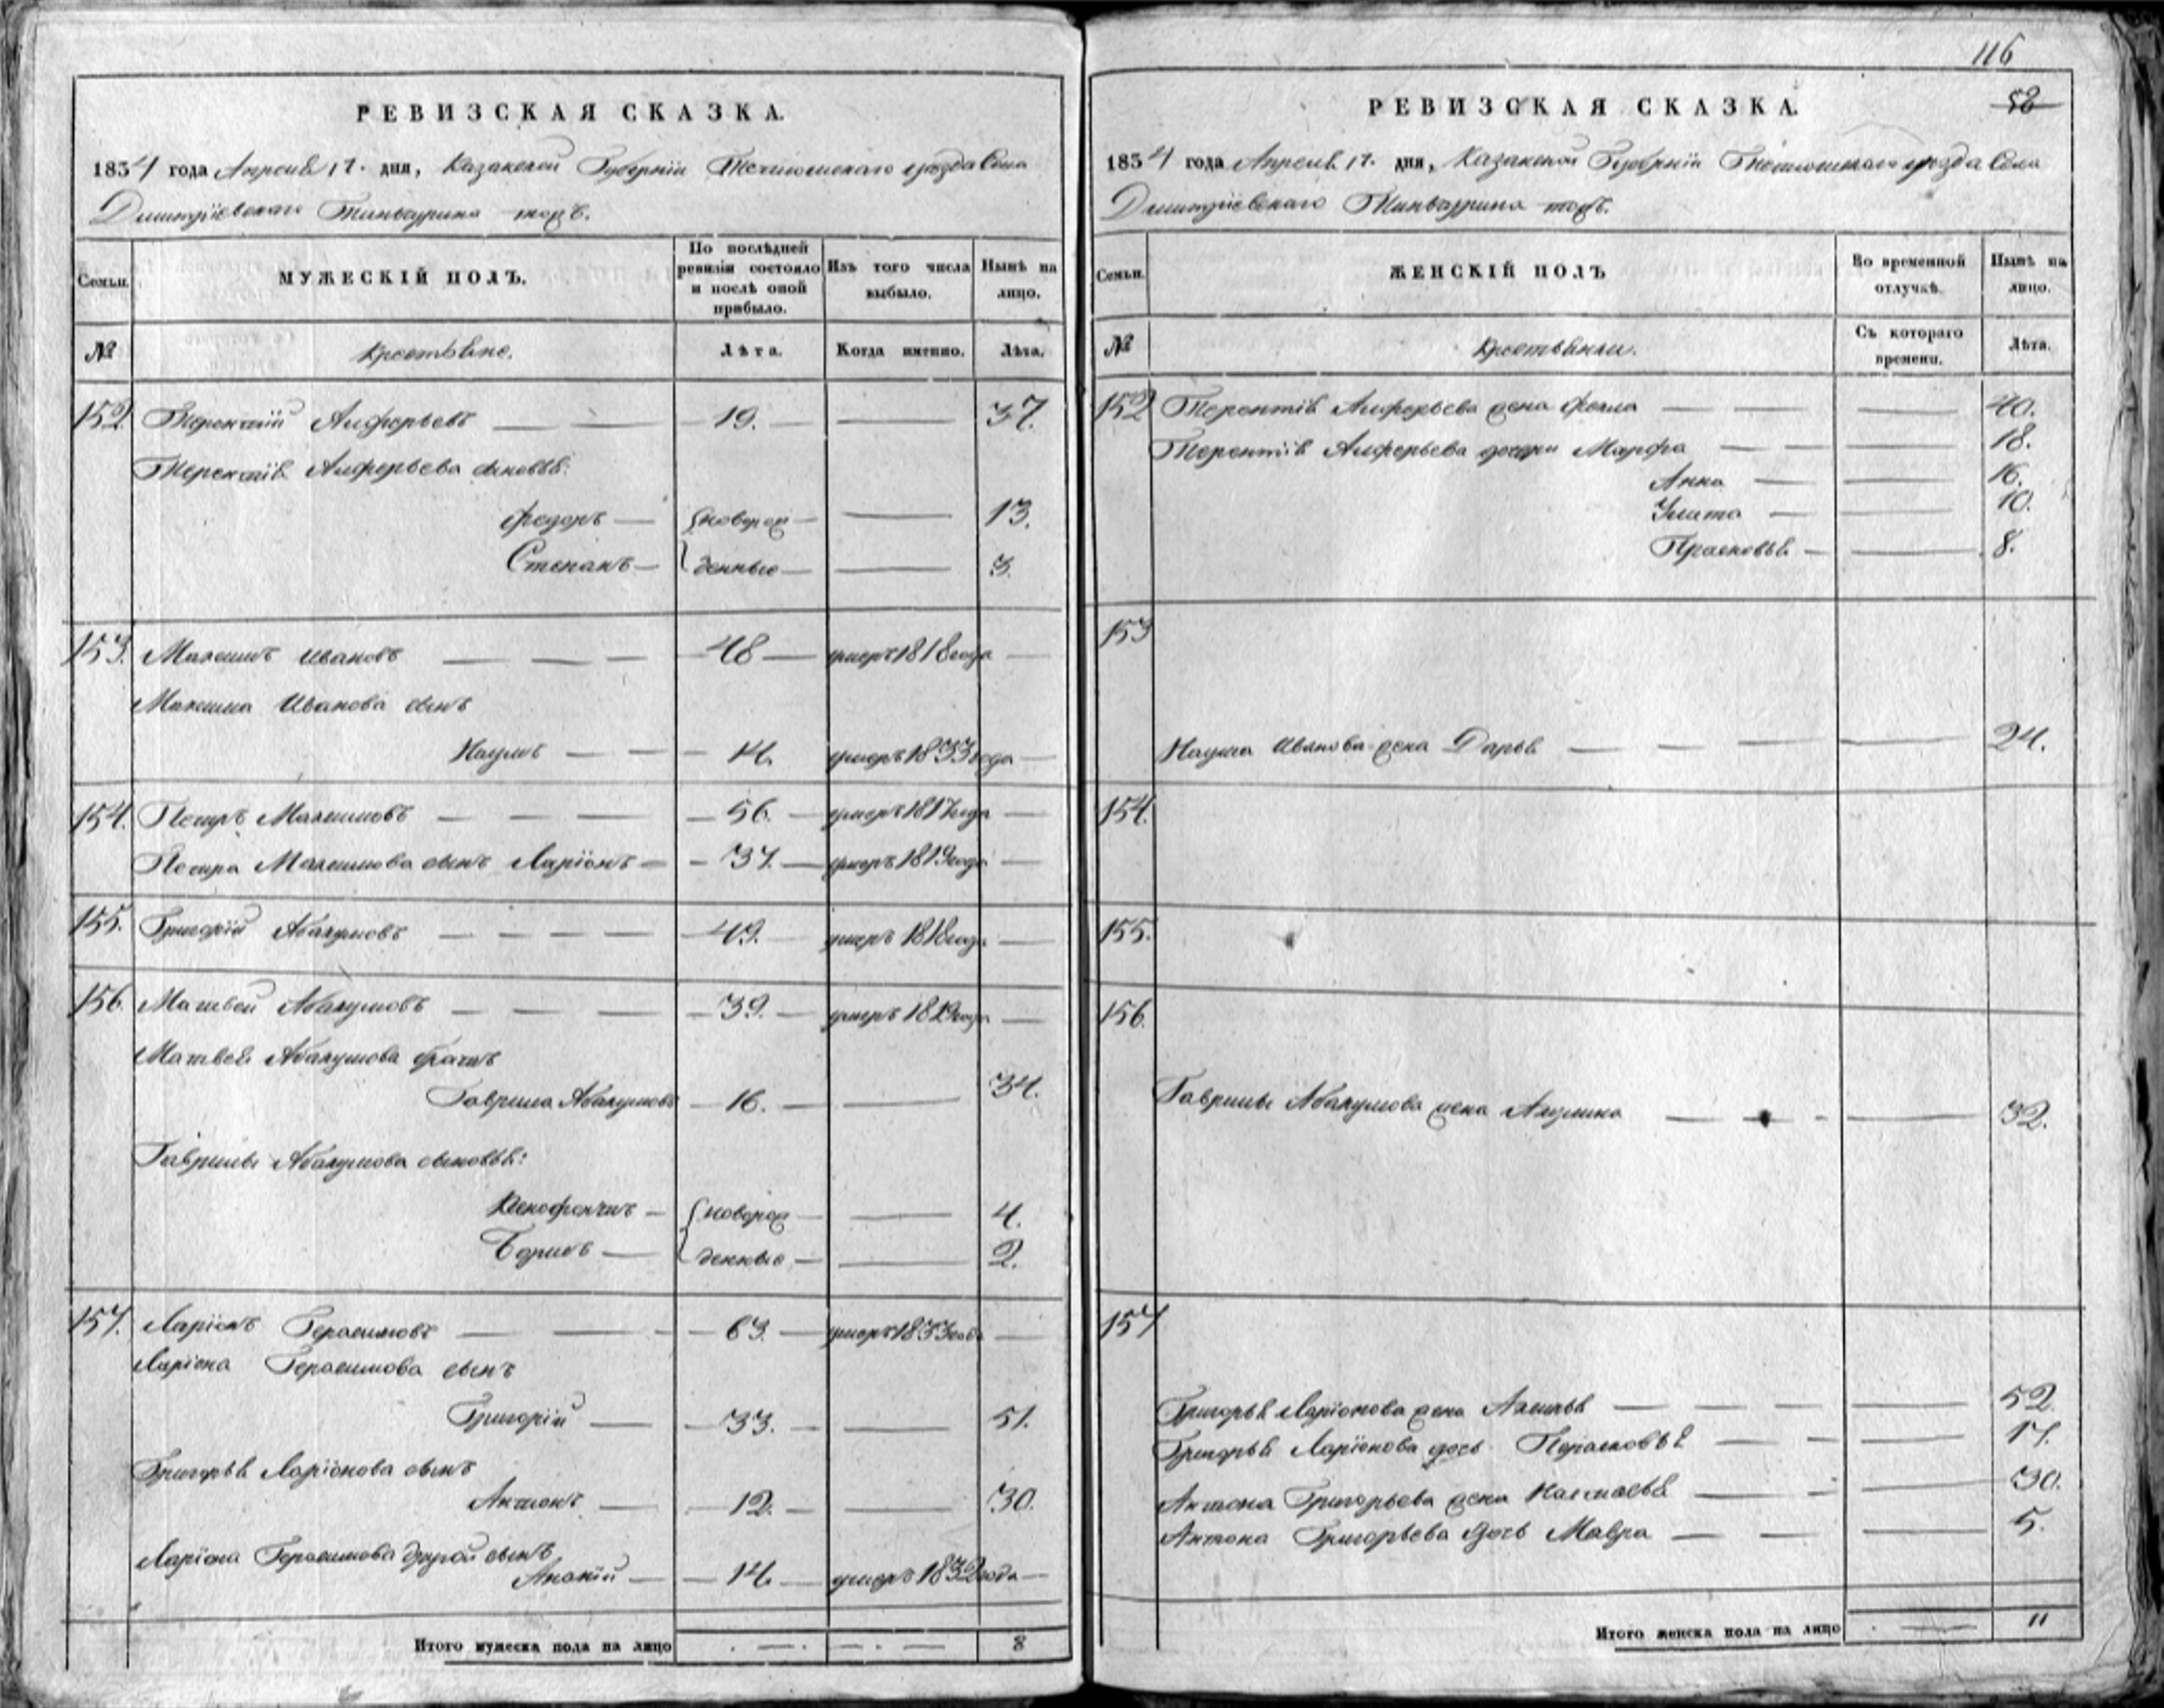 РЕВИЗСКАЯ СКАЗКА.
1834 года Апреля 17. дня, Казанской Губернiи Тетюшскаго уезда Села
Дмитрiевскаго тожъ.
Семьи.
МУЖЕСКIЙ ПОЛЪ.
По послѣдней ревизiи состояло и послѣ оной прибыло.
Изъ того числа выбыло.
Нынѣ на лицо.
№
Крестьяне.
Лѣта.
Когда именно.
Лѣта.
152 Терентiй Алферьевъ — — 19. — 37.
Терентiя Алферьева сыновья:
Федоръ — {новорож — — 13.
Степанъ — {денные — — 3.
153. Максимъ Ивановъ — — — 48 — умеръ 1818 года —
Максима Иванова сынъ
Наумъ — — — 14. умеръ 1833 года —
154. Петръ Максимовъ — — — 56. — умеръ 1817 года —
Петра Максимова сынъ Ларiонъ — 37. — умеръ 1819 года —
155. Григорiй Абакумовъ — — — — 49. — умеръ 1818 года —
156. Матвей Абакумовъ — — — 39. — умеръ 1829 года —
Матвея Абакумова братъ
Гаврила Абакумовъ — 16. — — 34.
Гаврилы Абакумова сыновья:
Ксенофонтъ — {новорож — — 4.
Борисъ — {денные — — 2.
157. Ларiонъ Герасимовъ — — — 63. — умеръ 1833 года —
Ларiона Герасимова сынъ
Григорiй — — 33. — — 51.
Григорья Ларiонова сынъ
Антонъ — — 12. — — 30.
Ларiона Герасимова другой сынъ
Ананiй — — 14. — умеръ 1832 года —
Итого мужеска пола на лицо . — . — 8
116
58
РЕВИЗСКАЯ СКАЗКА.
1834 года Апреля 17. дня, Казанской Губернiи Тетюшскаго уезда Села
Дмитрiевскаго тожъ.
Семьи.
ЖЕНСКIЙ ПОЛЪ
Во временной отлучкѣ.
Нынѣ на лицо.
№
Крестьянки.
Съ котораго времени.
Лѣта.
152 Терентiя Алферьева жена Фекла — — — — 40.
Терентiя Алферьева дочери Марфа — — — 18.
Анна — — 16.
Улита — — 10.
Прасковья — — 8.
153
Наума Иванова жена Дарья — — — — 24.
154.
155.
156.
Гаврилы Абакумова жена Акулина — — — — 32.
157
Григорья Ларiонова жена Акилина — — — — 52.
Григорья Ларiонова дочь Прасковья — — — 17.
Антона Григорьева жена Настасья — — — 30.
Антона Григорьева дочь Мавра — — — 5.
Итого женска пола на лицо . — 11